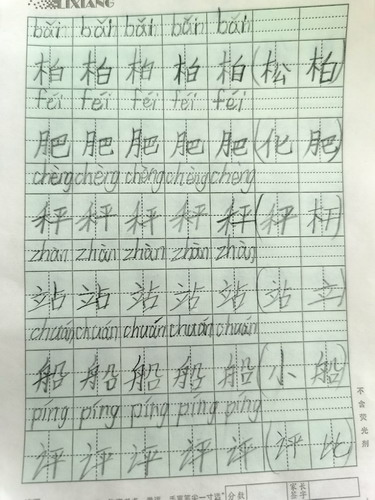 LIXIANG
bǎi bǎi bǎi bǎi bǎi
柏 柏 柏 柏 柏 (松 柏)
féi féi féi féi féi
肥 肥 肥 肥 肥 (化 肥)
chèng chèng chèng chèng chèng
秤 秤 秤 秤 秤 (秤 杆)
zhàn zhàn zhàn zhàn zhàn
站 站 站 站 站 (站 立)
chuán chuán chuán chuán chuán
船 船 船 船 船 (小 船)
píng píng píng píng píng
评 评 评 评 评 (评 比)
不含荧光剂
分数 家长签字